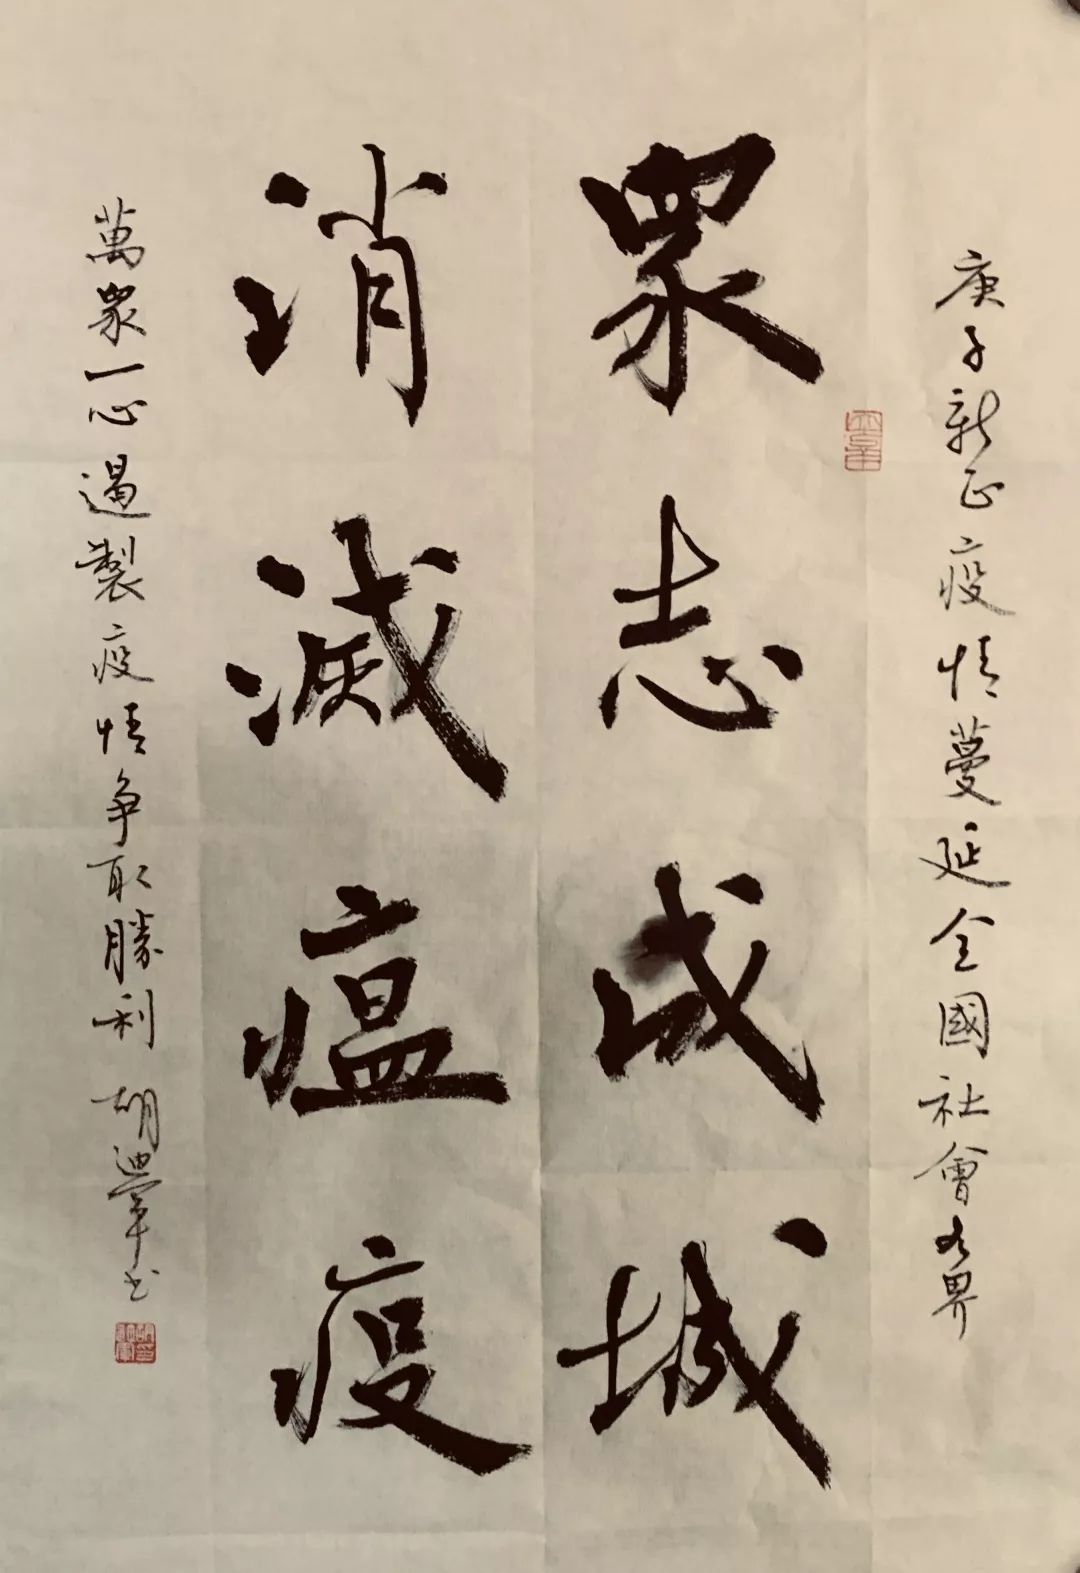 庚子新正疫情蔓延全國社會各界
眾志成城
消滅瘟疫
萬眾一心遏製疫情争取勝利 胡迪軍书